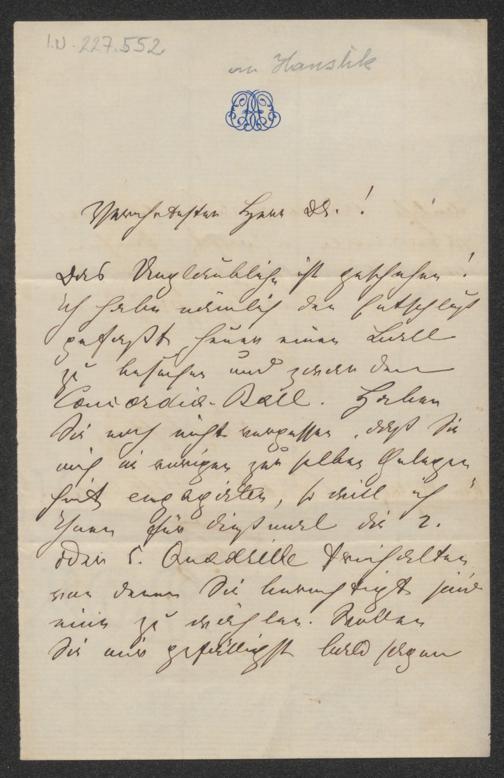 I.N. 227.552
an Hanslik
Verehrtester Herr Dr.!
Das Unglaubliche ist geschehen!
Ich habe nämlich den Entschluß
gefaßt, heuer einen Ball
zu besuchen und zwar den
Concordia-Ball. Haben
Sie noch nicht vergessen, daß Sie
mich im vorigen zur selben Gelegen
heit engagirten, so will ich
Ihnen für dießmal die 2.
oder 5. Quadrille freihalten
von denen Sie berechtigt sind
eine zu wählen. Wollen
Sie mir gefälligst bald sagen